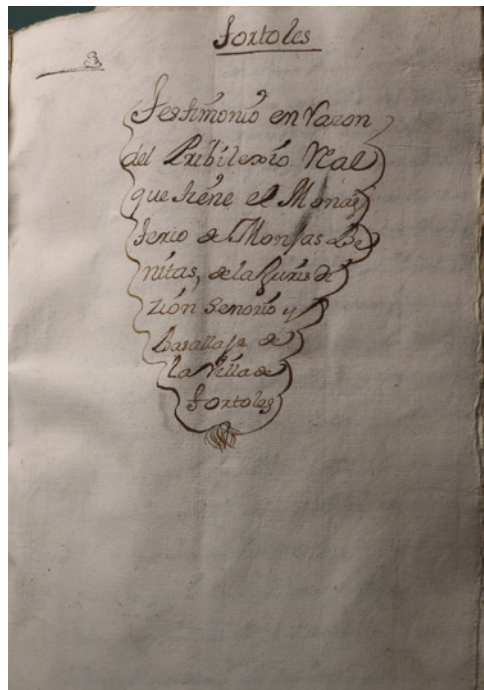 tortoles
testimonio en Razon
del Pribilexio Real
que tiene el Monas
terio de Monjas Be
nitas, de la Juris di
zion Senorio y
Basallaje de
la Villa de
tortoles